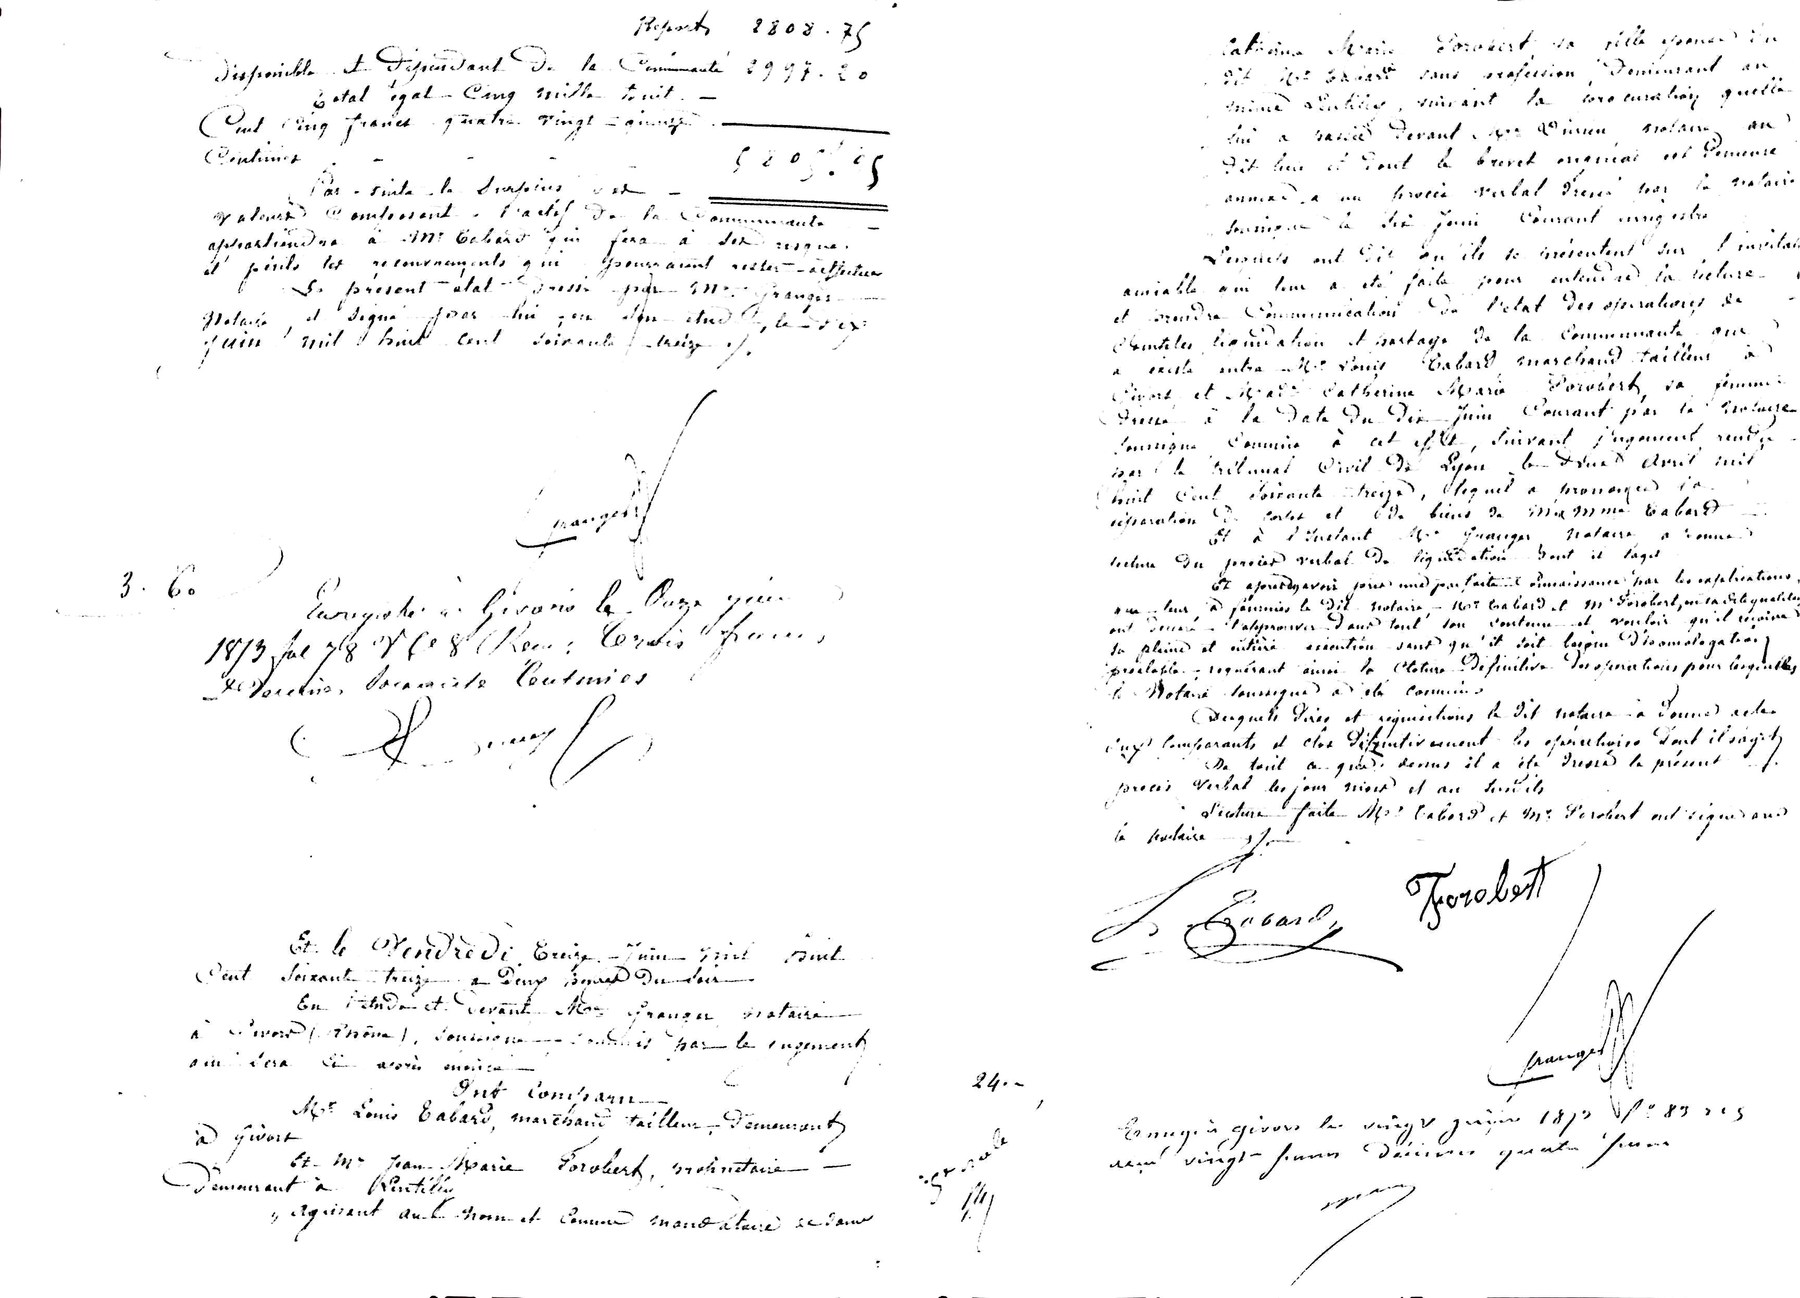 Report 2808.75
Disponible et Dépendant de la Communauté 2997.20
Total égal Cinq mille huit
Cent Cinq francs quatre vingt quinze
Centimes 5805.95
Par suite le Surplus des
valeurs Composant l'actif de la Communauté
appartiendra à Mr Tabard qui fera à ses risques
et périls les recouvrements qui pourraient rester à effectuer
Le présent état Dressé par Me Granger
Notaire et signé par lui en son étude, le dix
juin mil huit cent soixante treize
Granger
3.60
Enregistré à Givors le Onze juin
1873 fol 78 Vo C 8 Reçu: Trois francs,
Décimes soixante Centimes
Et le Vendredi Treize Juin mil huit
Cent soixante treize a Deux heures du soir
En l'étude et devant Me Granger notaire
à Givors (Rhône), soussigné commis par le jugement
qui sera ci après énoncé
Ont Comparu
Mr Louis Tabard, marchand tailleur, demeurant
à Givors
Et Mr Jean Marie Forobert, propriétaire
Demeurant à Lentilly
Agissant au nom et comme mandataire de dame
Catherine Marie Forobert, sa fille épouse du
dit Mr Tabard sans profession, Demeurant au
même Lentilly, suivant la procuration qu'elle
lui a passée devant Me notaire au
dit lieu et dont le brevet original est Demeuré
annexé a un procès verbal Dressé par le notaire
soussigné le dix Juin Courant enregistré
Lesquels ont dit qu'ils se présentent sur l'invitation
amiable qui leur a été faite pour entendre la lecture
et prendre Communication de l'état des opérations de
Comptes liquidation et partage de la Communauté qui
a existé entre Mr Louis Tabard marchand tailleur à
Givors et Made Catherine Marie Forobert, sa femme
Dressé à la Date du Dix Juin Courant par le notaire
soussigné Commis à cet effet, suivant jugement rendu
par le tribunal Civil de Lyon le Avril mil
huit Cent soixante treize, lequel a prononcé la
séparation de corps et de biens de Mr & Mme Tabard
Et à l'instant Me Granger Notaire a donné
lecture Du procès verbal De liquidation dont il s'agit
Et après avoir pris une parfaite connaissance par les explications
que leur a fournies le Dit notaire Mr Tabard et Mr Forobert, en sa dite qualité
ont déclaré l'approuver dans tout son contenu et vouloir qu'il reçoive
sa pleine et entière exécution sans qu'il soit besoin d'homologation
préalable, requérant ainsi la Clôture Définitive Des opérations pour lesquelles
le Notaire soussigné a été commis
Desquels Dires et réquisitions le dit notaire a Donné acte
aux Comparants et clos définitivement les opérations Dont il s'agit
De tout ce que dessus il a été Dressé le présent
procès verbal les jour mois et an susdits
Lecture faite Mr Tabard et Mr Forobert ont signé avec
le notaire
L. Tabard Forobert
Granger
24.-
Enregé à Givors le vingt juin 1873 fo 83
reçu vingt francs Décimes quatre francs